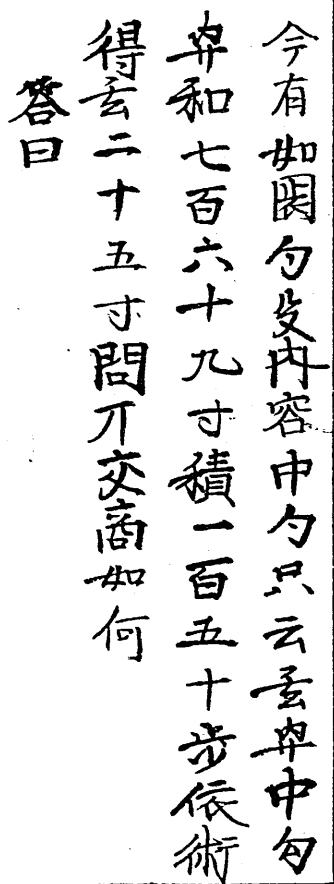 今有如図勾殳内容中勾只云玄冪中勾
冪和七百六十九寸積一百五十歩依術
得玄二十五寸問丌交商如何
答曰